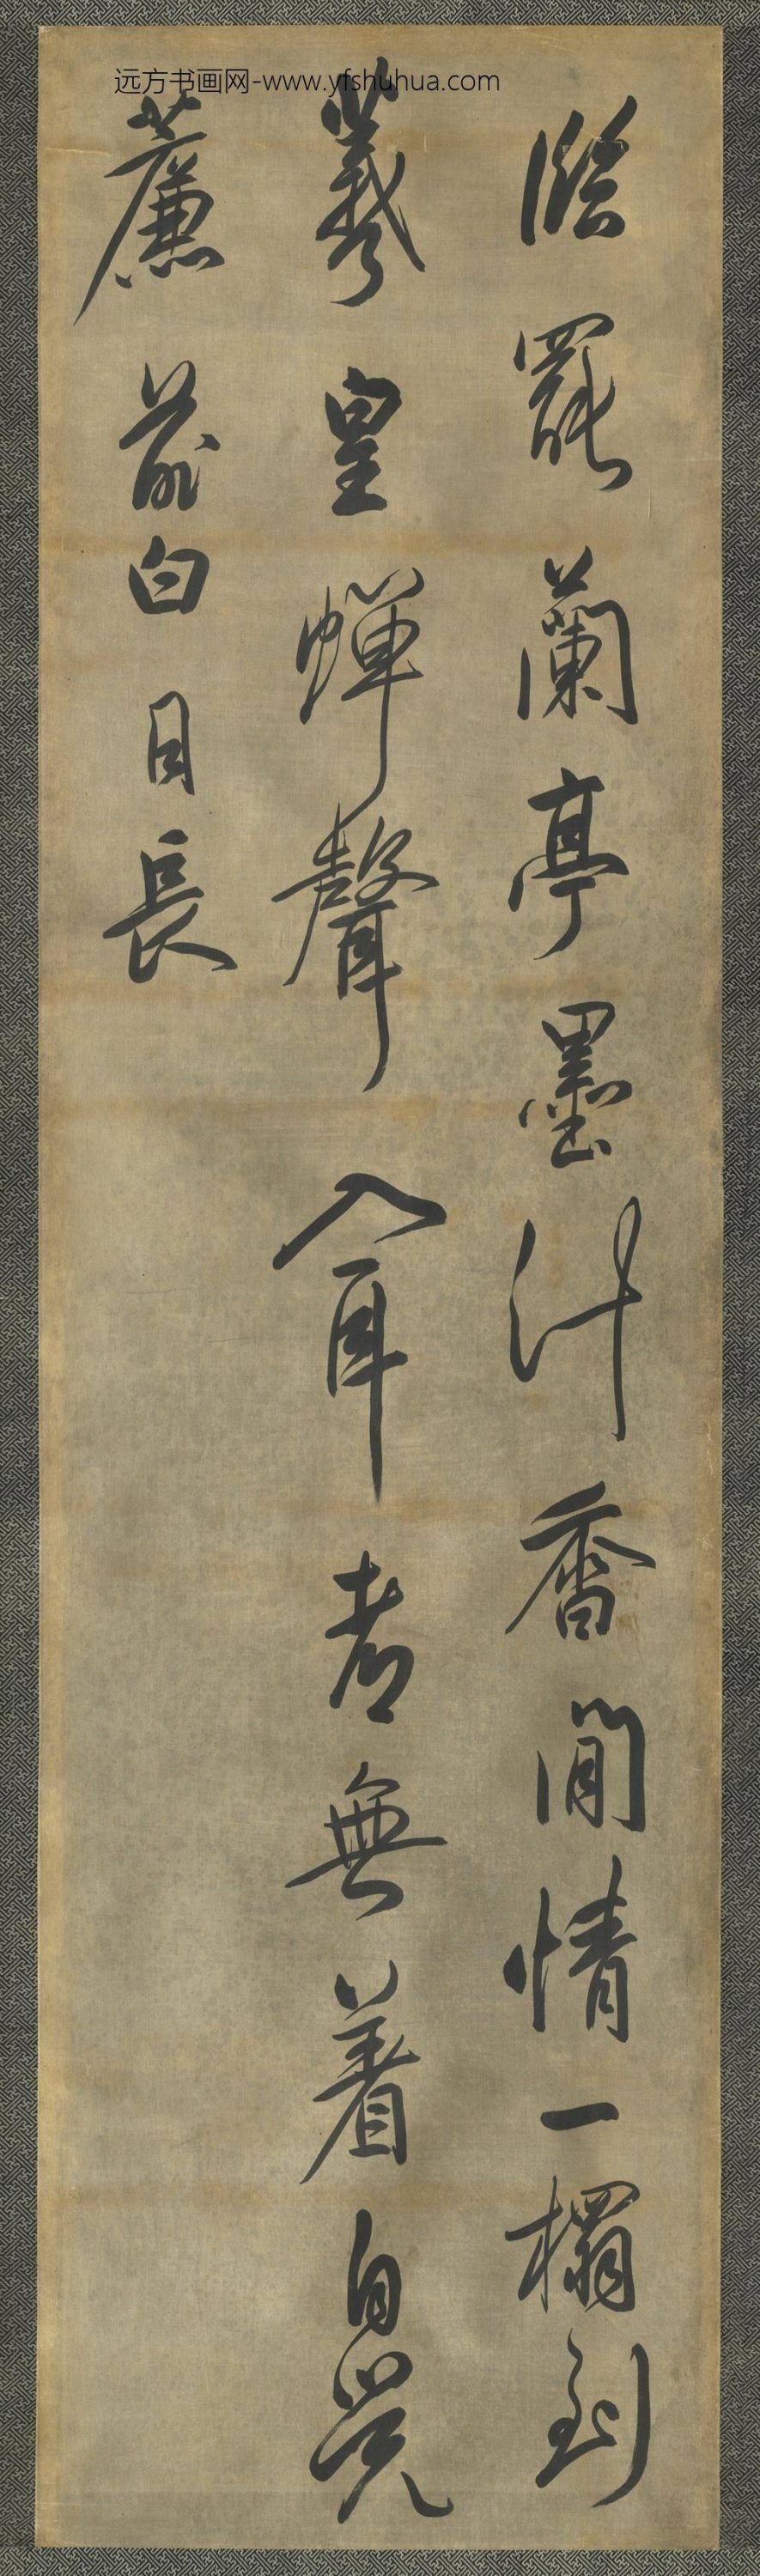 远方书画网-www.yfshuhua.com
臨罷蘭亭墨汁香閒情一榻到
羲皇蟬聲入耳者無著自覺
簾前白日長